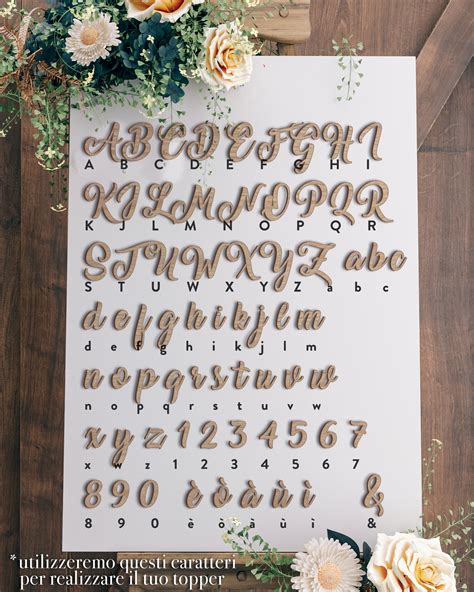 ABCDEFGHI
A B C D E F G H I
KJLMNOPQR
K J L M N O P Q R
STUVWXYZ abc
S T U V W X Y Z à b c
defghikjlm
d e f g h i k j l m
nopqrstuv
n o p q r s t u v
x y z 1 2 3 4 5 6 7
x w z 1 2 3 4 5 6 7
8 9 0 è ò à ù ì &
8 9 0 è ò à ù ì &
*utilizzeremo questi caratteri
per realizzare il tuo topper